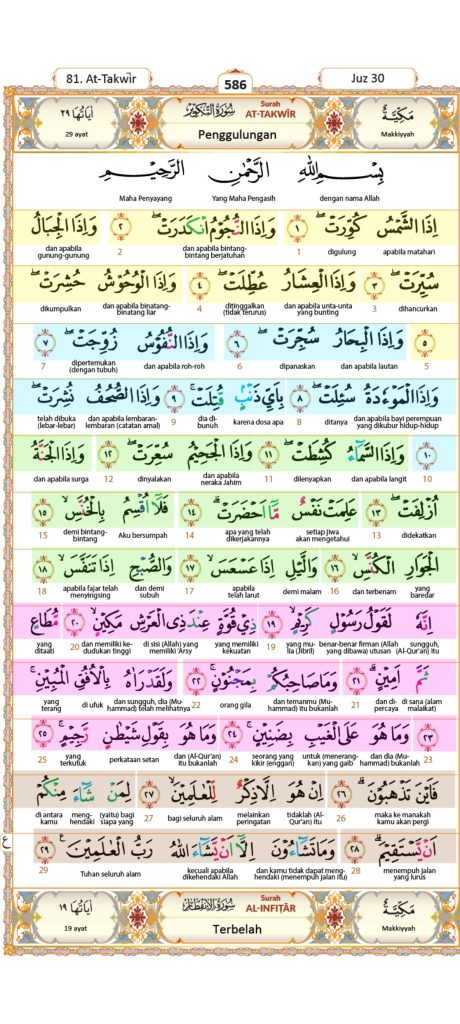 81. At-Takwīr
586
Juz 30
مَكِّيَّةٌ
Makkiyyah
سُوْرَةُ التَّكْوِيْر
Surah
AT-TAKWĪR
Penggulungan
اٰيَاتُهَا ٢٩
29 ayat
بِسْمِ اللّٰهِ الرَّحْمٰنِ الرَّحِيْمِ
dengan nama Allah Yang Maha Pengasih Maha Penyayang
اِذَا الشَّمْسُ كُوِّرَتْۖ ١ وَاِذَا النُّجُوْمُ انْكَدَرَتْۖ ٢ وَاِذَا الْجِبَالُ
apabila matahari digulung 1 dan apabila bintang-bintang berjatuhan 2 dan apabila gunung-gunung
سُيِّرَتْۖ ٣ وَاِذَا الْعِشَارُ عُطِّلَتْۖ ٤ وَاِذَا الْوُحُوْشُ حُشِرَتْۖ
dihancurkan 3 dan apabila unta-unta yang bunting ditinggalkan (tidak terurus) 4 dan apabila binatang-binatang liar dikumpulkan
٥ وَاِذَا الْبِحَارُ سُجِّرَتْۖ ٦ وَاِذَا النُّفُوْسُ زُوِّجَتْۖ ٧
5 dan apabila lautan dipanaskan 6 dan apabila roh-roh dipertemukan (dengan tubuh) 7
وَاِذَا الْمَوْءٗدَةُ سُىِٕلَتْۖ ٨ بِاَيِّ ذَنْۢبٍ قُتِلَتْۚ ٩ وَاِذَا الصُّحُفُ نُشِرَتْۖ
dan apabila bayi perempuan yang dikubur hidup-hidup ditanya 8 karena dosa apa dia dibunuh 9 dan apabila lembaran-lembaran (catatan amal) telah dibuka (lebar-lebar)
١٠ وَاِذَا السَّمَاۤءُ كُشِطَتْۖ ١١ وَاِذَا الْجَحِيْمُ سُعِّرَتْۖ ١٢ وَاِذَا الْجَنَّةُ
10 dan apabila langit dilenyapkan 11 dan apabila neraka Jahim dinyalakan 12 dan apabila surga
اُزْلِفَتْۖ ١٣ عَلِمَتْ نَفْسٌ مَّآ اَحْضَرَتْۗ ١٤ فَلَآ اُقْسِمُ بِالْخُنَّسِۙ ١٥
didekatkan 13 setiap jiwa akan mengetahui apa yang telah dikerjakannya 14 Aku bersumpah demi bintang-bintang 15
الْجَوَارِ الْكُنَّسِۙ ١٦ وَالَّيْلِ اِذَا عَسْعَسَۙ ١٧ وَالصُّبْحِ اِذَا تَنَفَّسَۙ ١٨
yang baredar dan terbenam 16 demi malam apabila telah larut 17 dan demi subuh apabila fajar telah menyingsing 18
اِنَّهٗ لَقَوْلُ رَسُوْلٍ كَرِيْمٍۙ ١٩ ذِيْ قُوَّةٍ عِنْدَ ذِى الْعَرْشِ مَكِيْنٍۙ ٢٠ مُّطَاعٍ
sungguh, (Al-Qur'an) itu benar-benar firman (Allah yang dibawa) utusan yang mulia (Jibril) 19 yang memiliki kekuatan di sisi (Allah) yang memiliki 'Arsy dan memiliki kedudukan tinggi 20 yang ditaati
ثَمَّ اَمِيْنٍۗ ٢١ وَمَا صَاحِبُكُمْ بِمَجْنُوْنٍۚ ٢٢ وَلَقَدْ رَاٰهُ بِالْاُفُقِ الْمُبِيْنِۚ
di sana (alam malaikat) dan dipercaya 21 dan temanmu (Muhammad) itu bukanlah orang gila 22 dan sungguh, dia (Muhammad) telah melihatnya di ufuk yang terang
٢٣ وَمَا هُوَ عَلَى الْغَيْبِ بِضَنِيْنٍۚ ٢٤ وَمَا هُوَ بِقَوْلِ شَيْطٰنٍ رَّجِيْمٍۚ ٢٥
23 dan dia (Muhammad) bukanlah untuk (menerangkan) yang gaib seorang yang kikir (enggan) 24 dan (Al-Qur'an) itu bukanlah perkataan setan yang terkutuk 25
فَاَيْنَ تَذْهَبُوْنَۗ ٢٦ اِنْ هُوَ اِلَّا ذِكْرٌ لِّلْعٰلَمِيْنَۙ ٢٧ لِمَنْ شَاۤءَ مِنْكُمْ
maka ke manakah kamu akan pergi 26 tidaklah (Al-Qur'an) itu melainkan peringatan bagi seluruh alam 27 (yaitu) bagi siapa yang menghendaki di antara kamu
اَنْ يَّسْتَقِيْمَۗ ٢٨ وَمَا تَشَاۤءُوْنَ اِلَّآ اَنْ يَّشَاۤءَ اللّٰهُ رَبُّ الْعٰلَمِيْنَ ࣖ ٢٩
menempuh jalan yang lurus 28 dan kamu tidak dapat menghendaki (menempuh jalan itu) kecuali apabila dikehendaki Allah Tuhan seluruh alam 29
ع
مَكِّيَّةٌ
Makkiyyah
سُوْرَةُ الْاِنْفِطَار
Surah
AL-INFIṬĀR
Terbelah
اٰيَاتُهَا ١٩
19 ayat